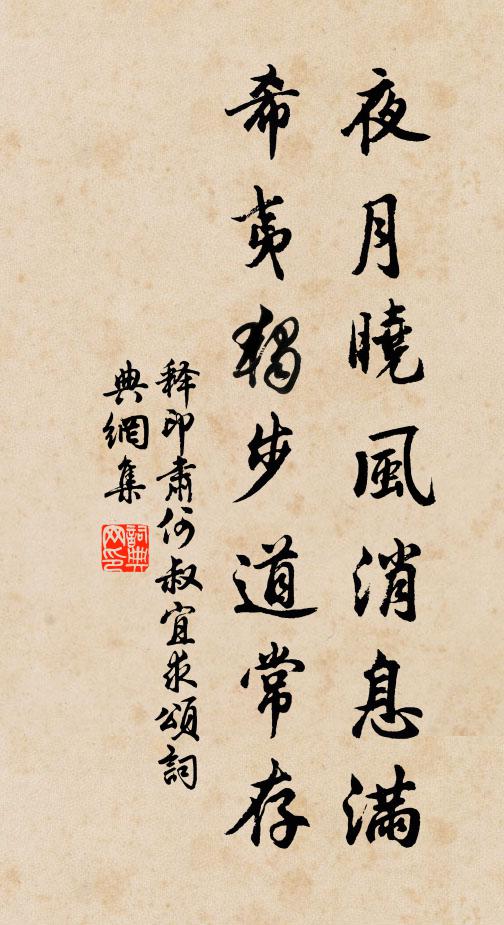 夜月曉風消息滿
希夷獨步道常存
释印肅何叔宜求頌詞
典網集
詞典網印